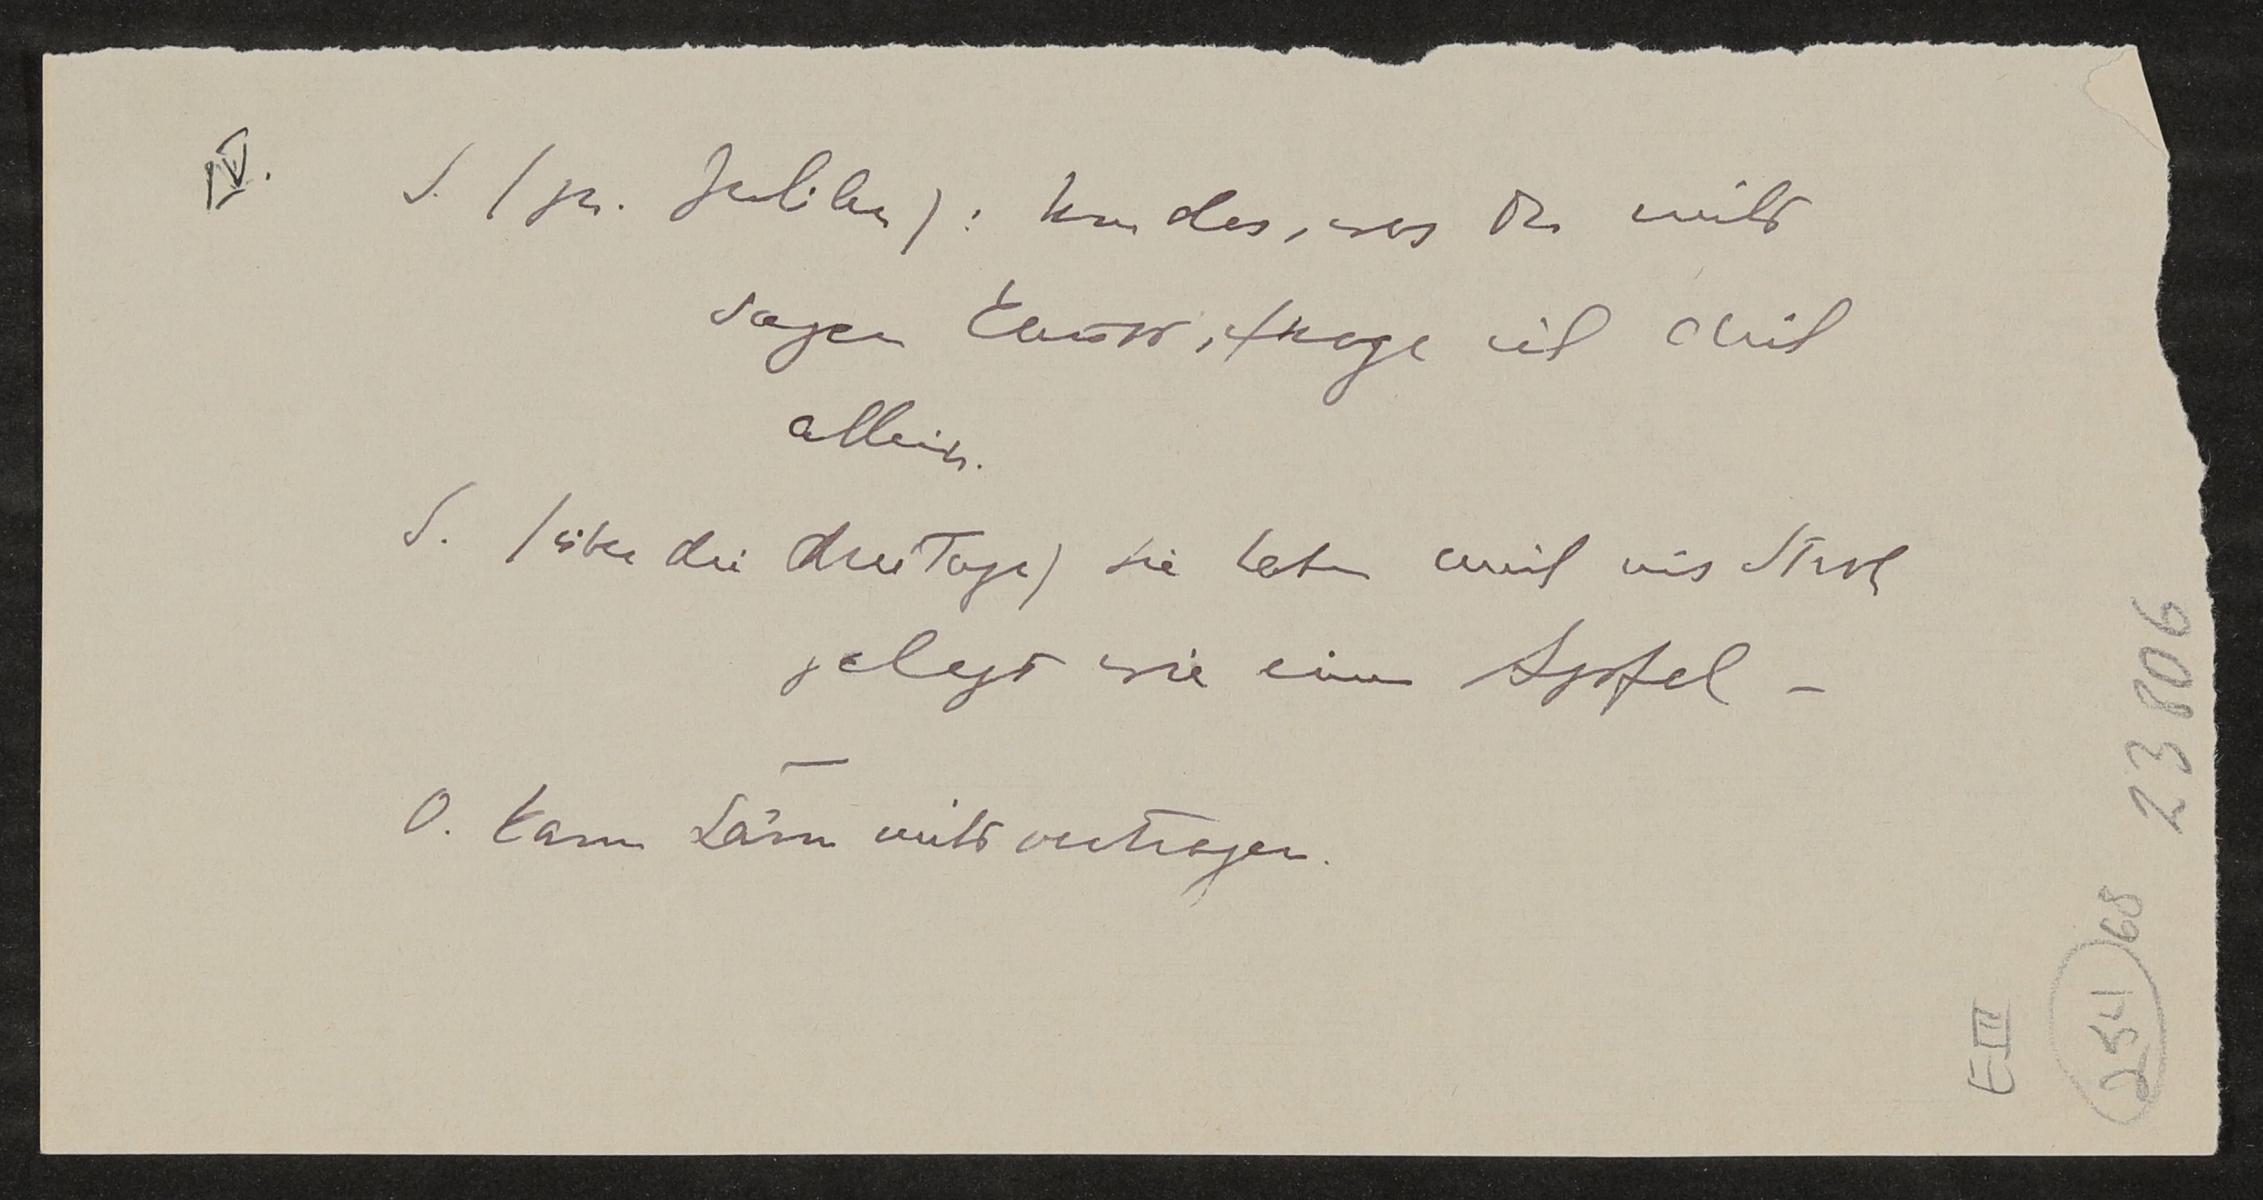 IV. S. (zu Julika): Um das, was Du nicht
sagen kannst, frage ich Dich
allein.
S. (über die drei Tage) sie haben mich ins Stroh
gelegt wie einen Apfel –
–
O. kann Lärm nicht vertragen.
23806
254 68
E III